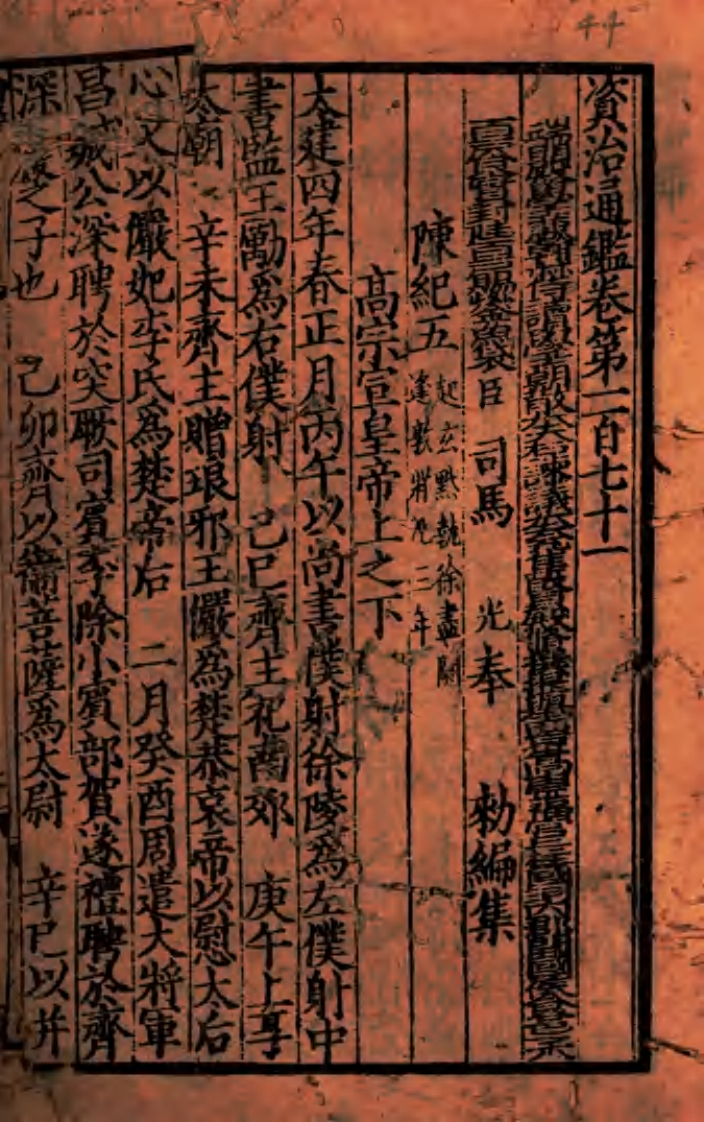 資治通鑑卷第一百七十一
端明殿學士兼翰林侍讀學士朝散大夫右諫議大夫充集賢殿修撰提舉西京嵩山崇福宮上柱國河內郡開國侯食邑
百戶食實封賜紫金魚袋臣 司馬 光奉 勑編集
陳紀五 起玄黓執徐盡閼
逢敦牂凡三年
高宗宣皇帝上之下
太建四年春正月丙午以尚書僕射徐陵爲左僕射中
書監王勱爲右僕射 己巳齊主祀南郊 庚午上享
太廟 辛未齊主贈琅邪王儼爲楚恭哀帝以慰太后
心又以儼妃李氏爲楚帝后 二月癸酉周遣大將軍
昌城公深聘於突厥司賓李除小賓部賀遂禮聘於齊
深之子也 己卯齊以衛菩薩爲太尉 辛巳以并